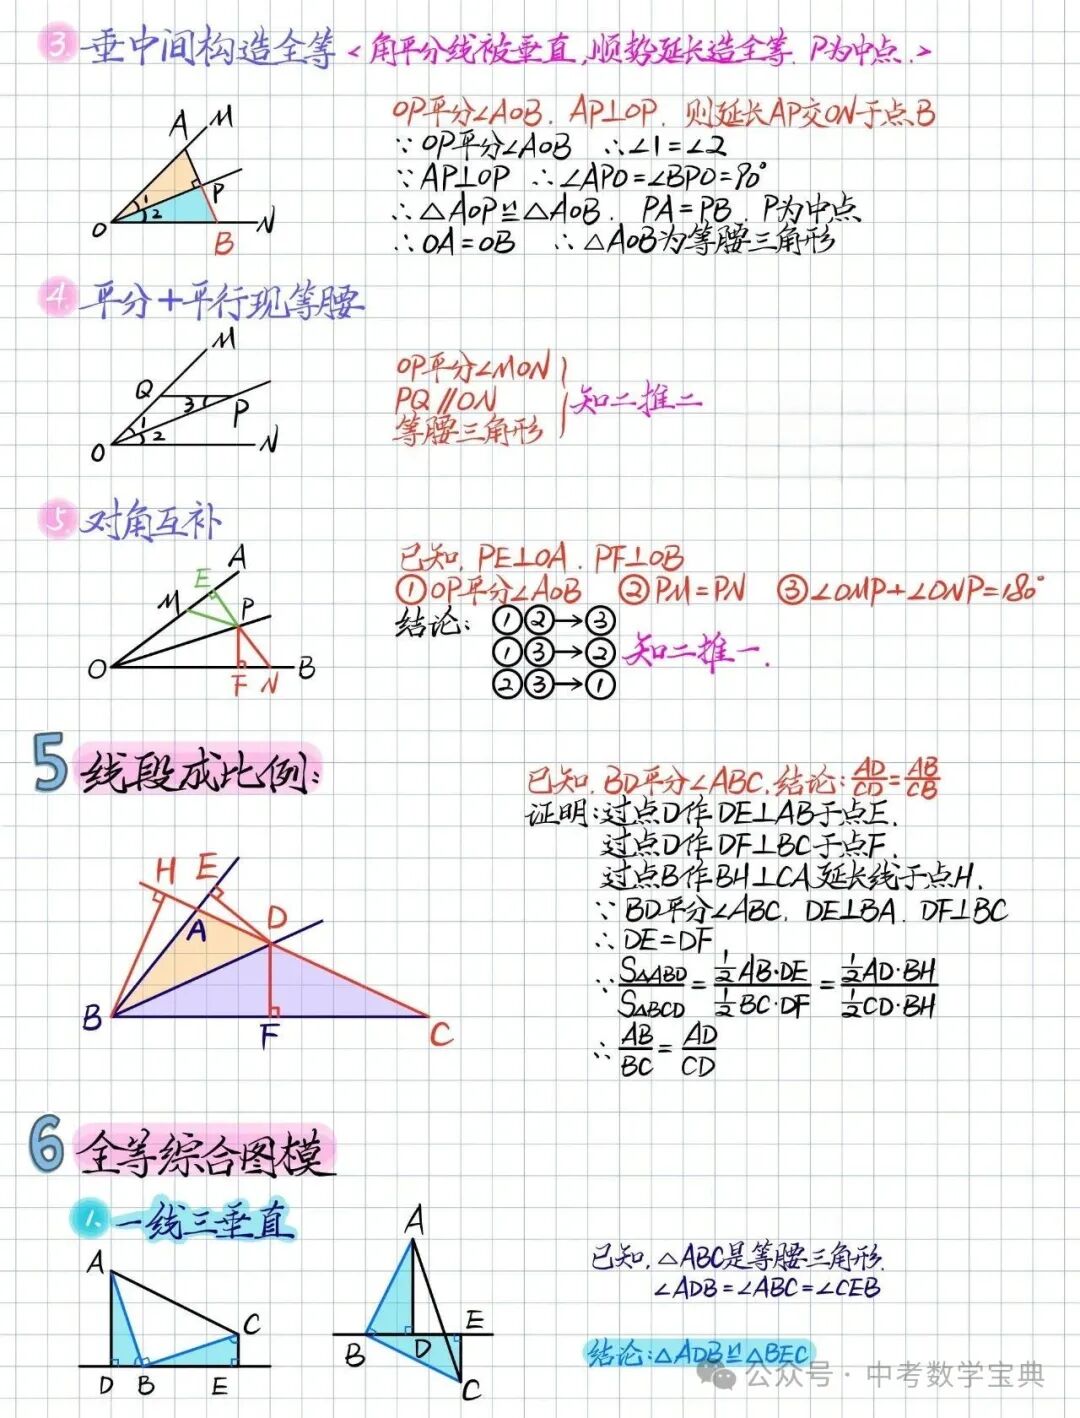 3 垂中间构造全等<角平分线被垂直,顺势延长造全等.P为中点.>
OP平分∠AOB.AP⊥OP.则延长AP交ON于点B
∵OP平分∠AOB ∴∠1=∠2
∵AP⊥OP ∴∠APO=∠BPO=90°
∴△AOP≌△AOB.PA=PB.P为中点
∴OA=OB ∴△AOB为等腰三角形
A M
1 P
2
O B N
4. 平分+平行现等腰
OP平分∠MON
PQ∥ON
等腰三角形
知二推二
M
Q
3 P
1
2
O N
5. 对角互补
已知,PE⊥OA.PF⊥OB
①OP平分∠AOB ②PM=PN ③∠OMP+∠ONP=180°
结论:①②→③
①③→②
②③→①
知二推一.
A
E
M P
O B
F N
5 线段成比例:
已知,BD平分∠ABC,结论:AD/CD=AB/CB
证明:过点D作DE⊥AB于点E.
过点D作DF⊥BC于点F.
过点B作BH⊥CA延长线于点H.
∵BD平分∠ABC,DE⊥BA.DF⊥BC
∴DE=DF
∵S△ABD/S△BCD=½AB·DE/½BC·DF=½AD·BH/½CD·BH
∴AB/BC=AD/CD
H E
A D
B F C
6 全等综合图模
1. 一线三垂直
已知,△ABC是等腰三角形.
∠ADB=∠ABC=∠CEB
结论:△ADB≌△BEC
A
C
D B E
A
E
B D
C
公众号·中考数学宝典